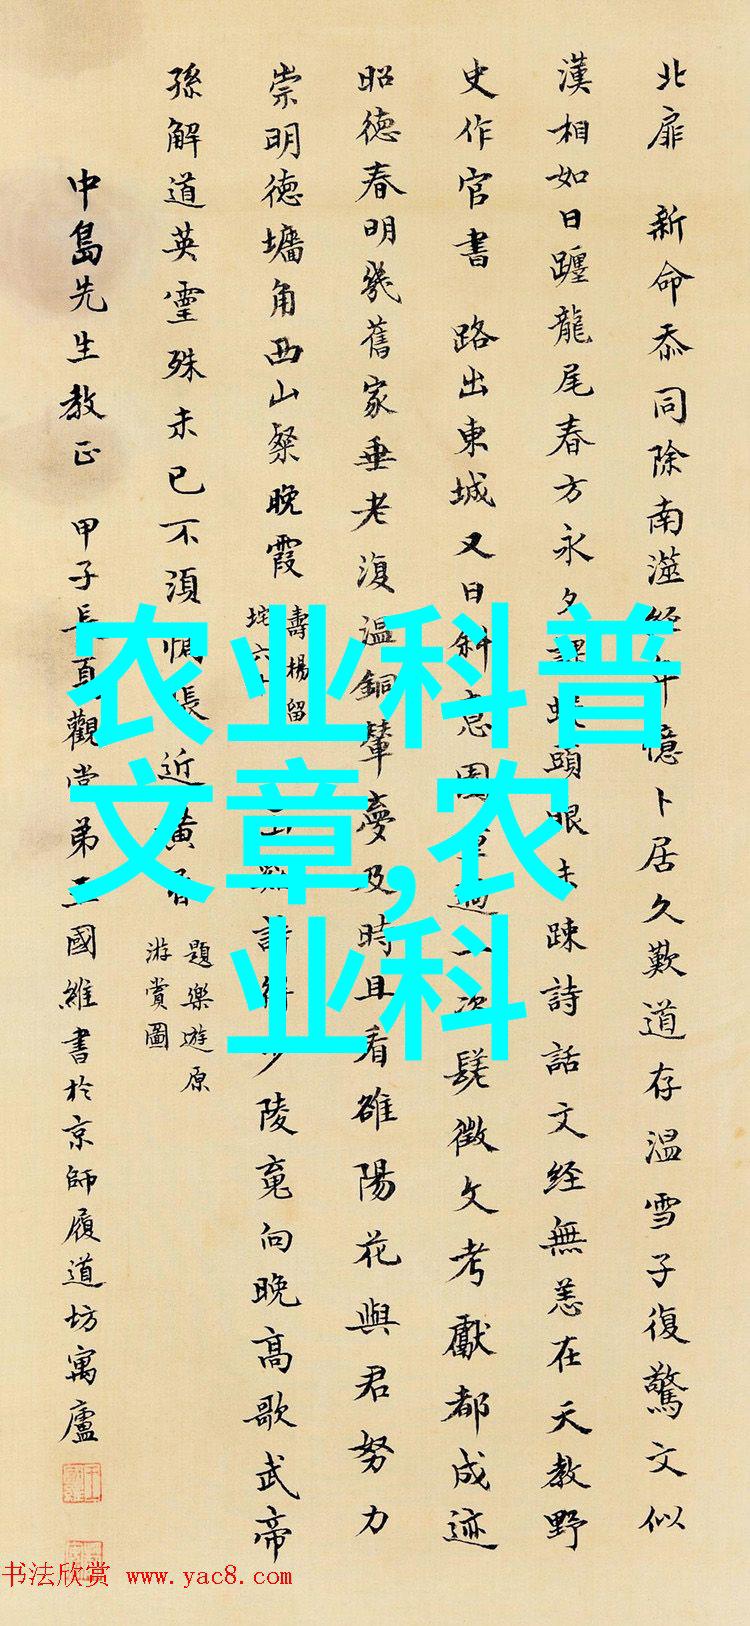 北扉 新命忝同除南澨經年憶卜居久歎道存温雪子復驚文似
漢相如日躔龍尾春方永夕課頭眼未疎詩話文經無恙在天教野
史作官書 路出東城又日斜意園重過一徵文考獻都成迹
昭德春明幾舊家垂老復温銅輦夢及時且看雒陽花與君努力
崇明德墉角西山粲晚霞
壽楊留
垞六十
詩少陵竟向晚高歌武帝
孫解道英靈殊未已不須惆悵近黄昏
題樂遊原
游賞圖
中島先生教正 甲子長夏觀堂弟王國維書於京師履道坊寓廬
农业科普
文章,农
业科
书法欣赏 www.yac8.com